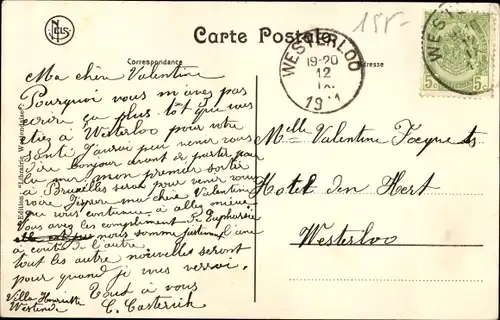 Nels
Carte Postale
Correspondance
Adresse
155-
WESTERLOO
19-20
12
1911
WESTERLOO
5c 5c
Edition "Librairie Westendaise"
Ma chère Valentine
Pourquoi vous m'avez pas
ecrire ça plus tôt que vous
etiez a Westerloo pour votre
Santé j'aurai peu venir vous
dire bonjour avant de partir pour
la mer mon premier sortie
à Bruxelles serai pour venir vous
voire j'espere ma chère Valentine
que vous continue a allez mieux
Vous avez les compliment de Euphrasie
nous somme justement l'une
à couté de l'autre.
tout les autre nouvelles seront
pour quand je vous verrai.
Toud à vous
C. Casterick
Villa Henriette
Westende
Melle Valentine
Hotel den Hert
Westerloo